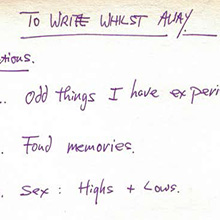 TO WRITE WHILST AWAY.
tions.
.. Odd things I have experi
. Fond memories.
. Sex : Highs + Lows.